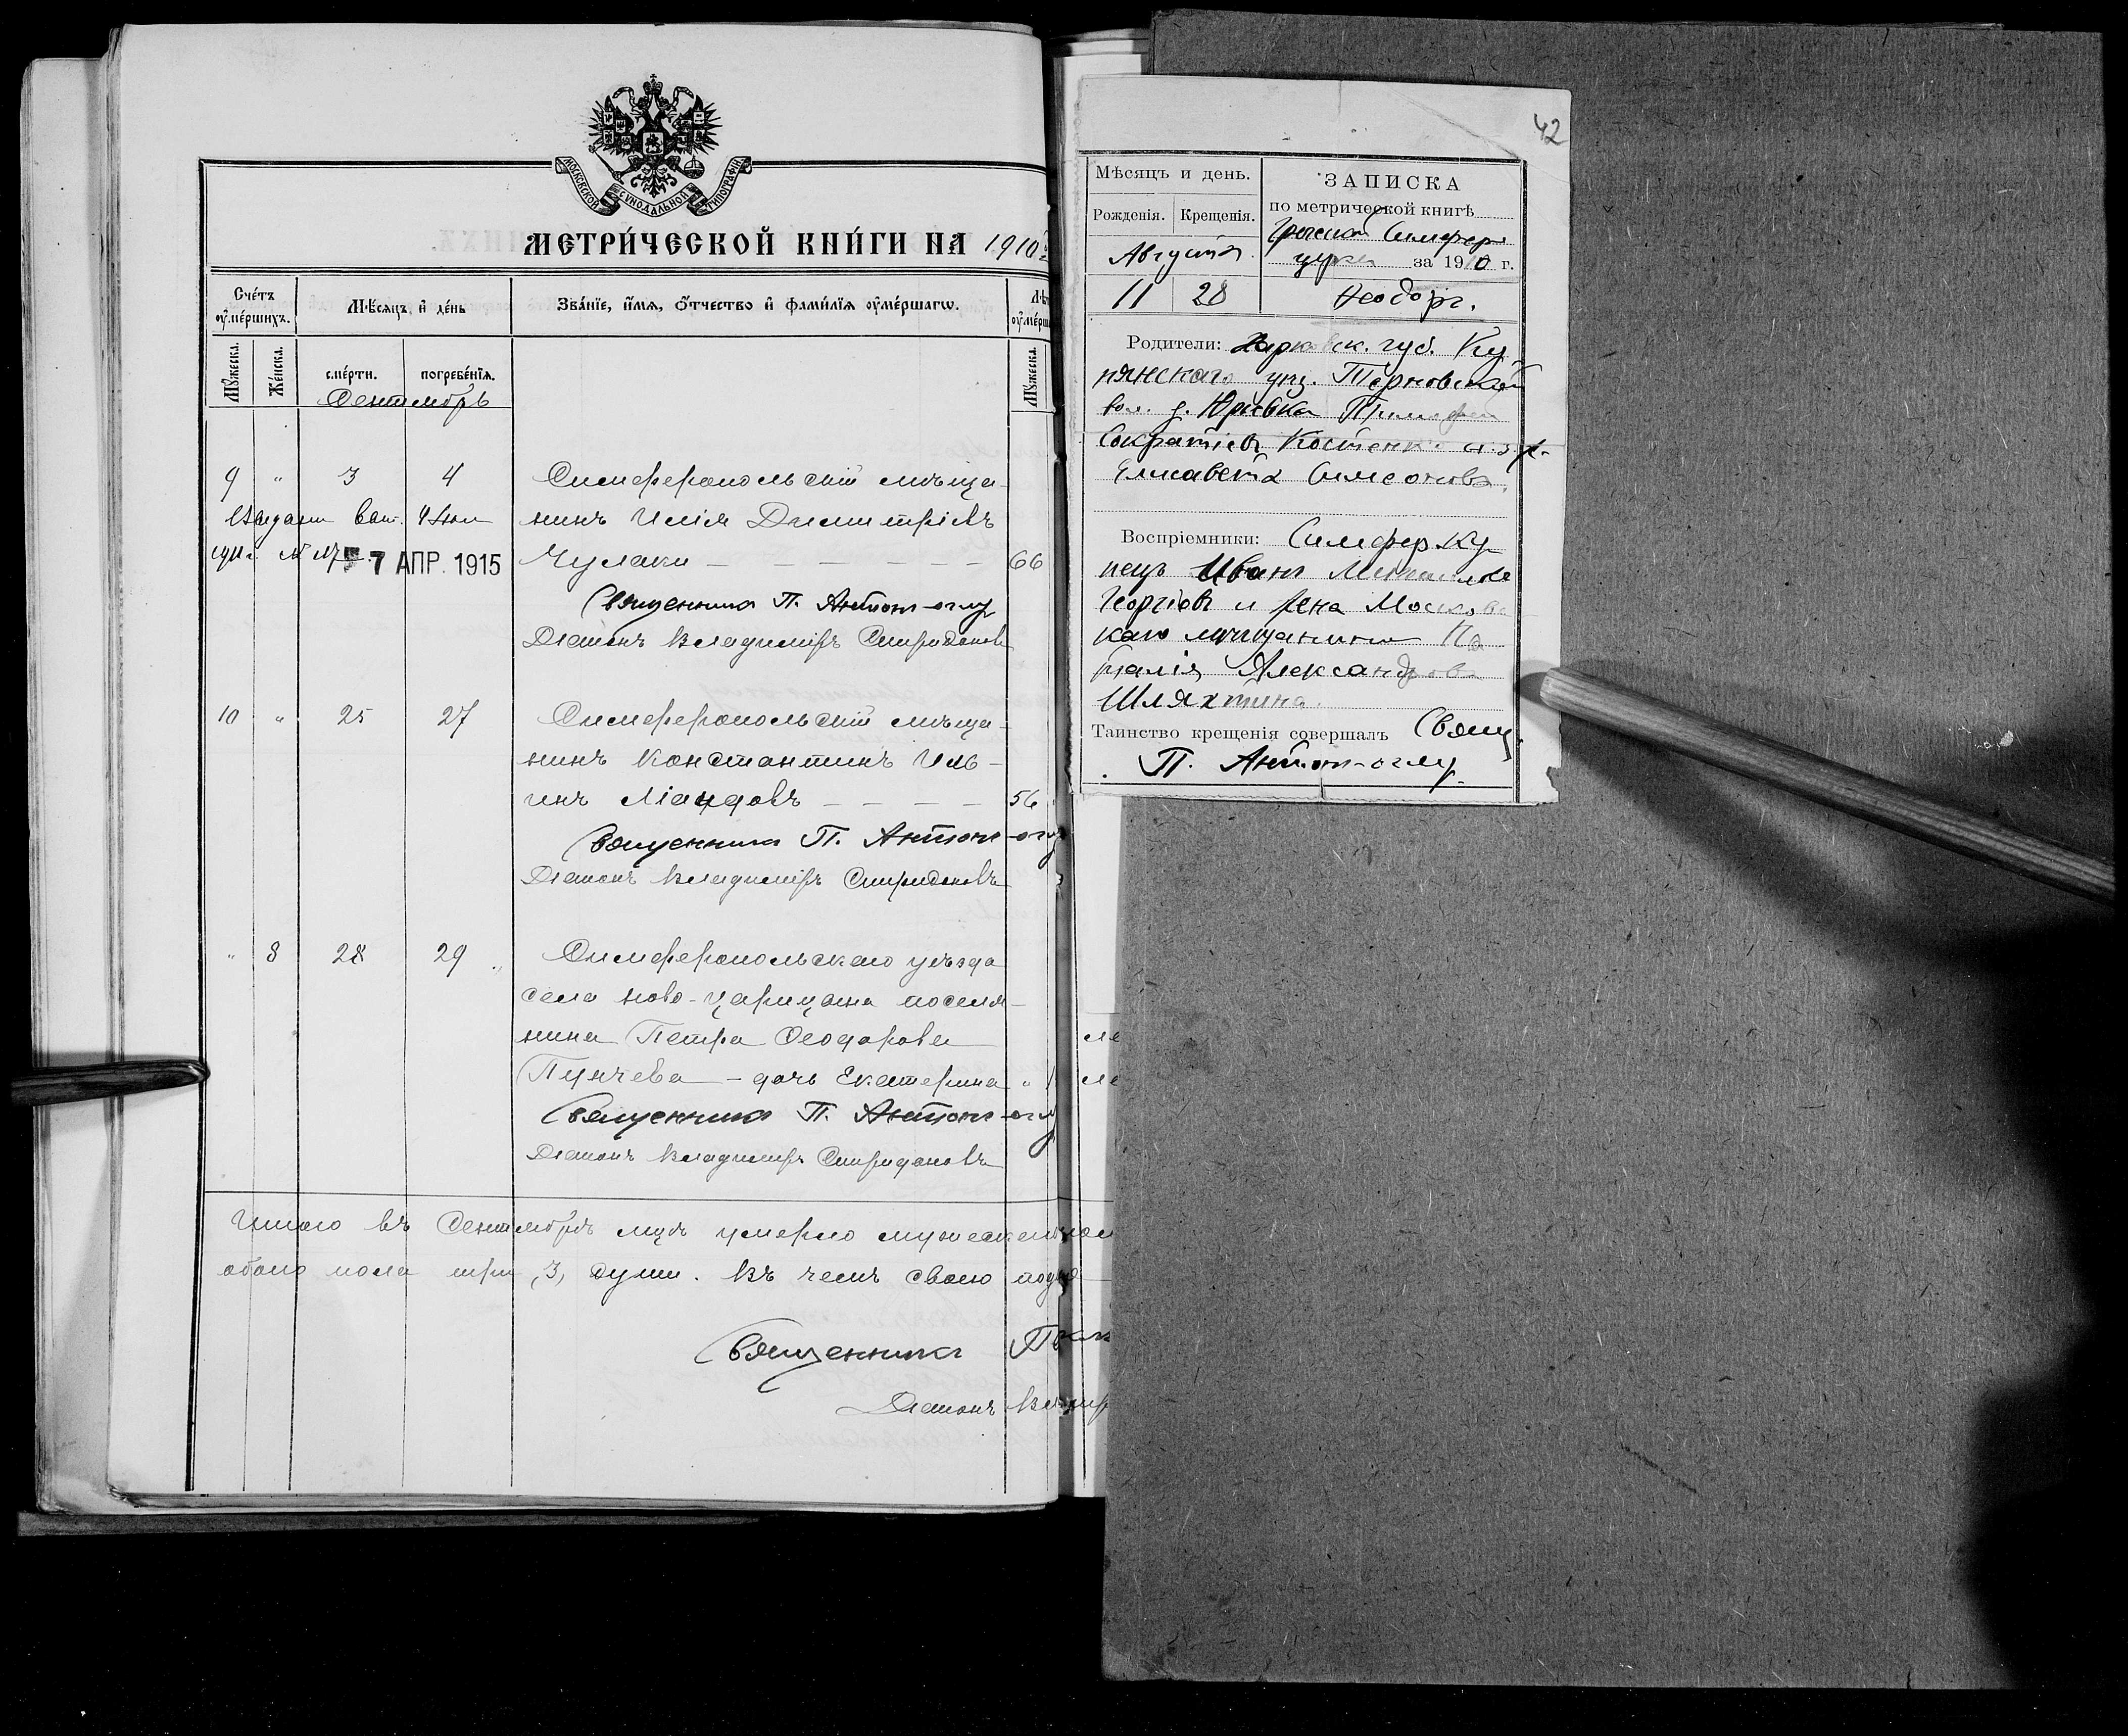 МОСКОВСКОЙ СУНОДАЛЬНОЙ ТИПОГРАФІИ
МЕТРИ́ЧЕСКОЙ КНИ́ГИ НА 1910
Сче́тъ оу҆ме́ршихъ.
Мѣ́сяцъ и҆ де́нь
Зва́нїе, и҆́мя, ѻ҆́тчество и҆ фами́лїя оу҆ме́ршагѡ.
Мꙋ́жеска.
Же́нска.
сме́рти.
погребе́нїя.
Мꙋ́жеска.
Сентябрь
9 " 3 4 Симферопольскій мѣща-
нинъ Илія Димитріевъ
Чулаки — — — — — — 66
7 АПР. 1915
Священникъ П. Антон-оглу
Діаконъ Владиміръ Спиридоновъ
10 " 25 27 Симферопольскій мѣща-
нинъ Константинъ Иль-
инъ — — — — 56
Священникъ П. Антон-оглу
Діаконъ Владиміръ Спиридоновъ
" 8 28 29 Симферопольскаго уѣзда
села Ново-Царицына поселя-
нина Петра Ѳеодорова
Пунчева — дочь Екатерина " 1
Священникъ П. Антон-оглу
Діаконъ Владиміръ Спиридоновъ
Итого въ Сентябрѣ мцѣ умерло мужеска
обоего пола три, 3, души. Въ чемъ свою подпи
Священникъ
Діаконъ
42
Мѣсяцъ и день.
Рожденія. Крещенія.
Августа
11 28
ЗАПИСКА
по метрической книгѣ
Греческой Симфероп
церкви за 1910 г.
Ѳеодоръ.
Родители: Харковск. губ. Ку-
пянскаго уѣз. Терновской
вол. д. Юрьевка Тимофей
Сократіевъ Костенко и з. ж.
Елисавета Симеонова.
Воспріемники: Симфер. ку-
пецъ Иванъ Михаилов
Георгіовъ и жена Московс
каго мѣщанина На
талія Александрова
Шляхтина.
Таинство крещенія совершалъ Свящ.
П. Антон-оглу.